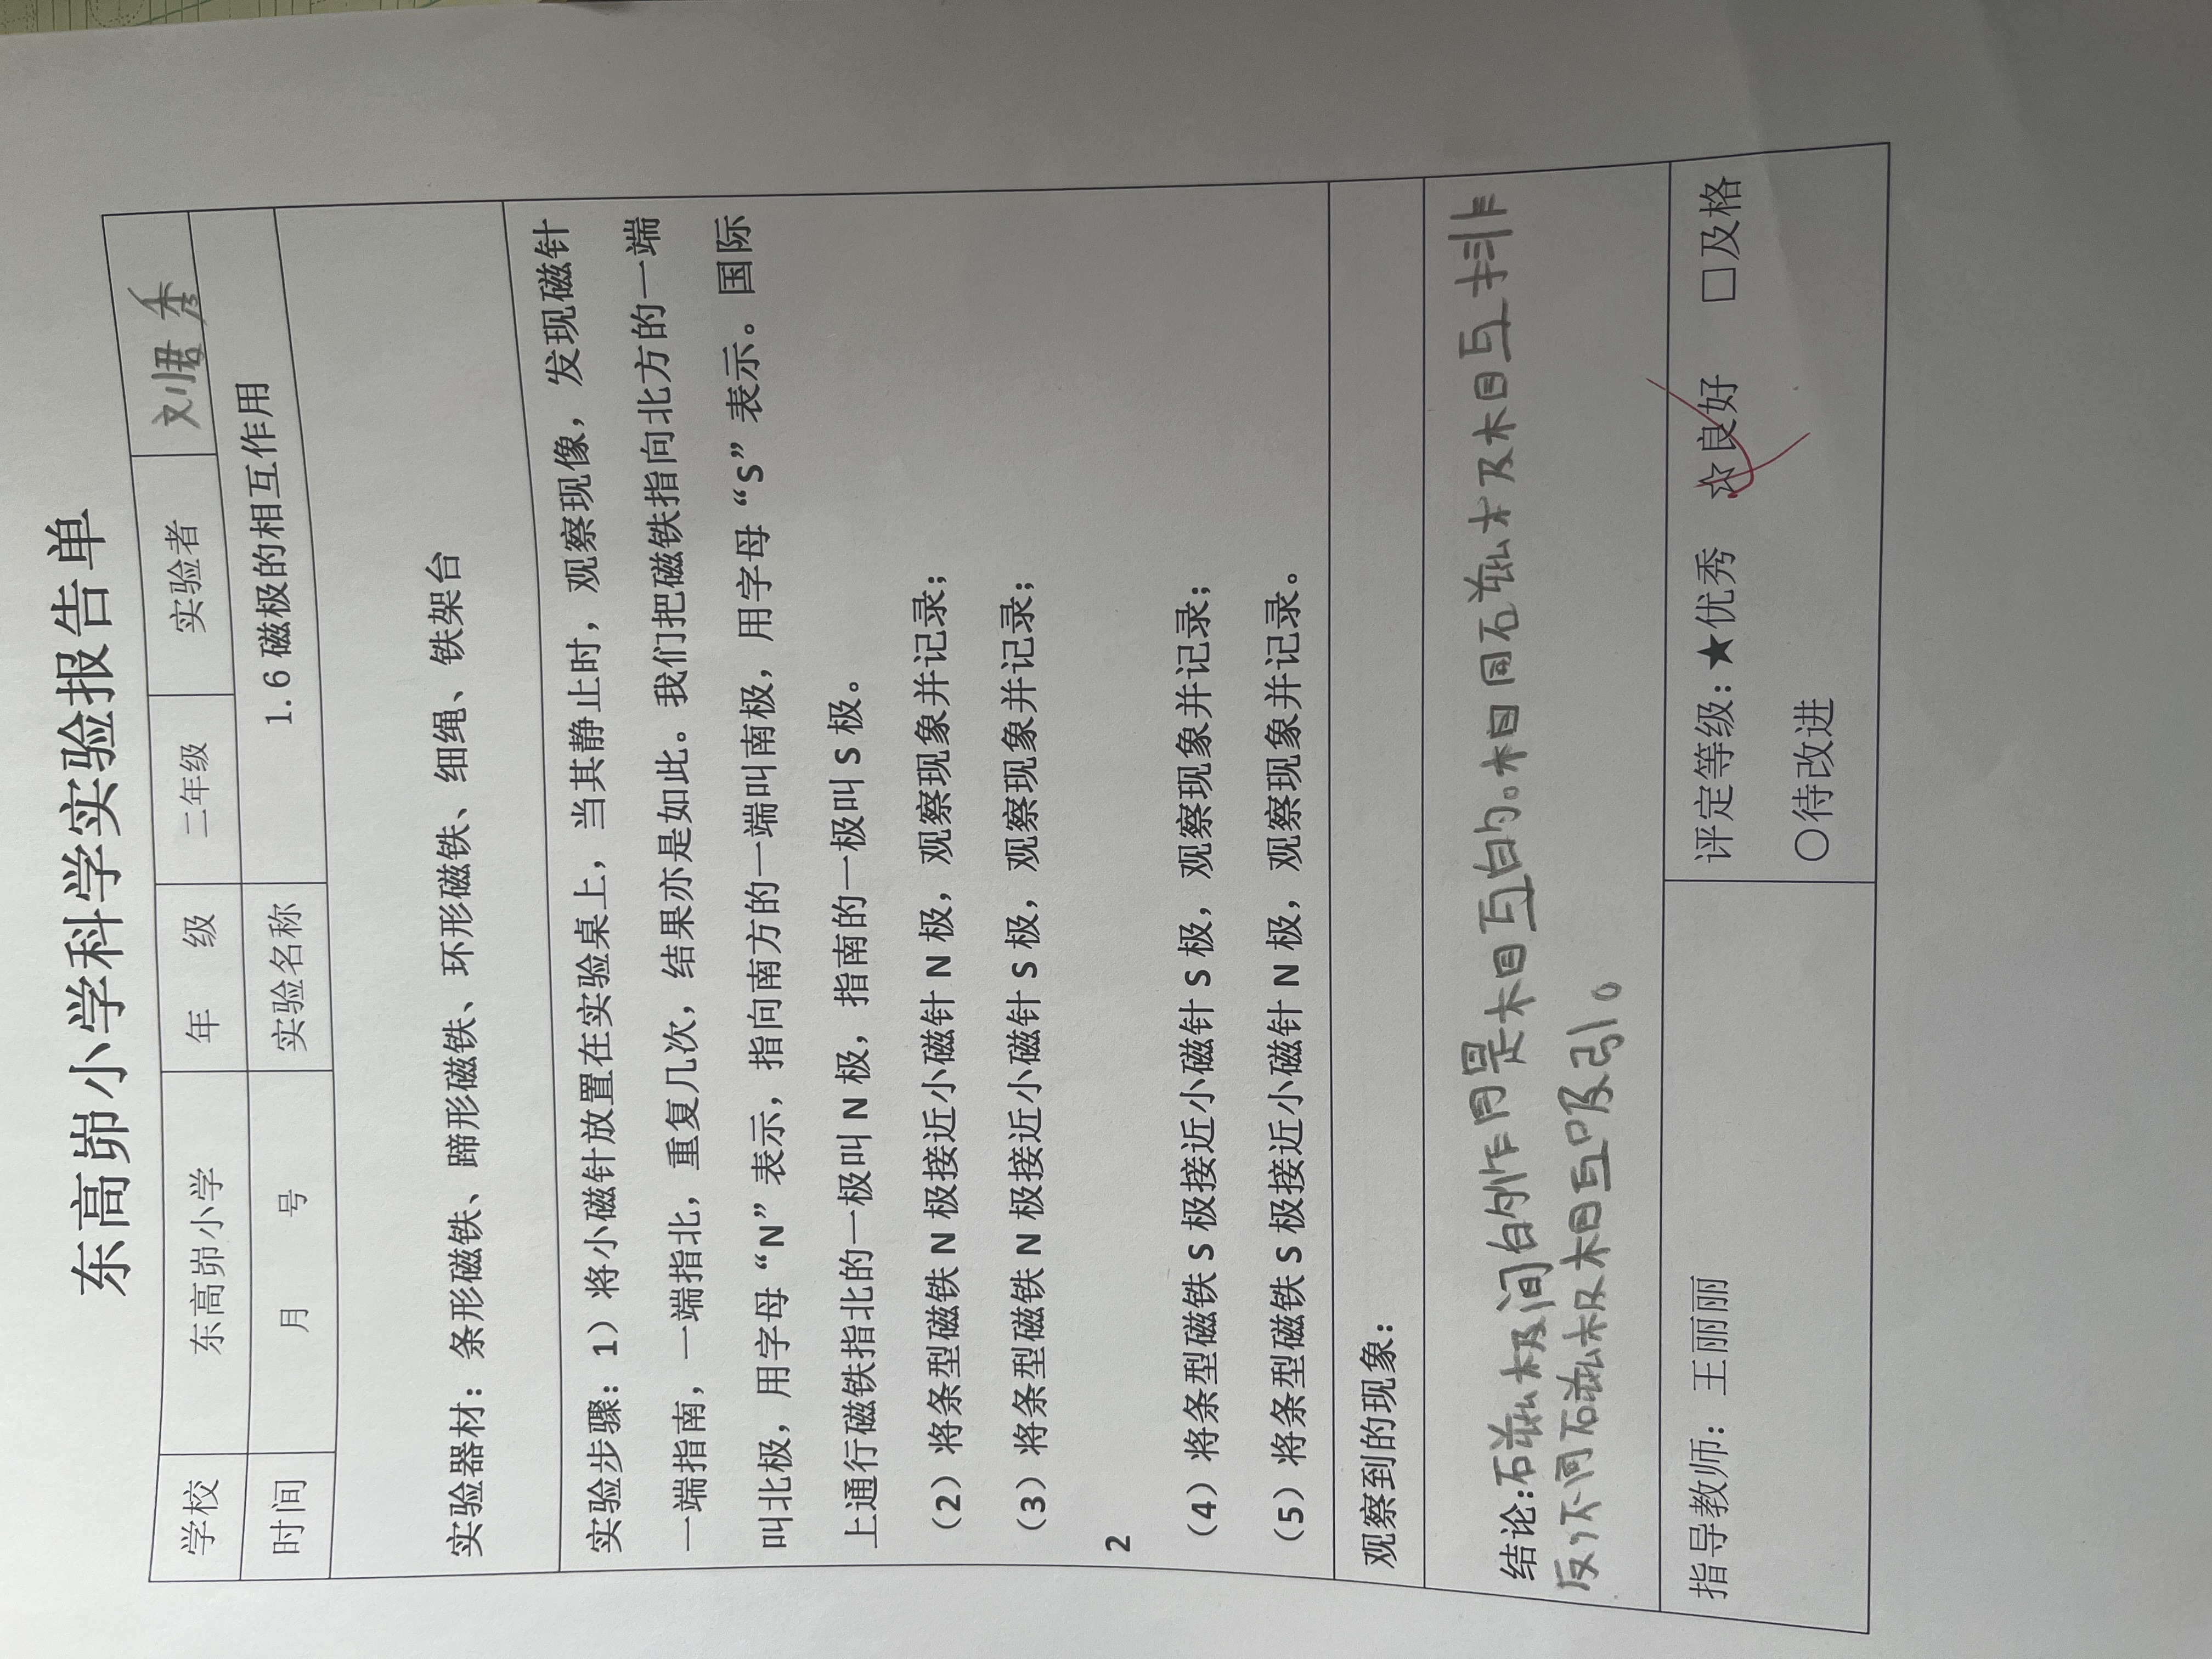 东高峁小学科学实验报告单
学校 东高峁小学 年 级 二年级 实验者 刘君秀
时间 月 号 实验名称 1.6 磁极的相互作用
实验器材：条形磁铁、蹄形磁铁、环形磁铁、细绳、铁架台
实验步骤：1）将小磁针放置在实验桌上，当其静止时，观察现像，发现磁针
一端指南，一端指北，重复几次，结果亦是如此。我们把磁铁指向北方的一端
叫北极，用字母“N”表示，指向南方的一端叫南极，用字母“S”表示。国际
上通行磁铁指北的一极叫 N 极，指南的一极叫 S 极。
（2）将条型磁铁 N 极接近小磁针 N 极，观察现象并记录；
（3）将条型磁铁 N 极接近小磁针 S 极，观察现象并记录；
2
（4）将条型磁铁 S 极接近小磁针 S 极，观察现象并记录；
（5）将条型磁铁 S 极接近小磁针 N 极，观察现象并记录。
观察到的现象：
结论：磁极间的作用是相互的。相同磁极相互排
斥，不同磁极相互吸引。
指导教师：王丽丽 评定等级：★优秀 ☆良好 □及格
○待改进